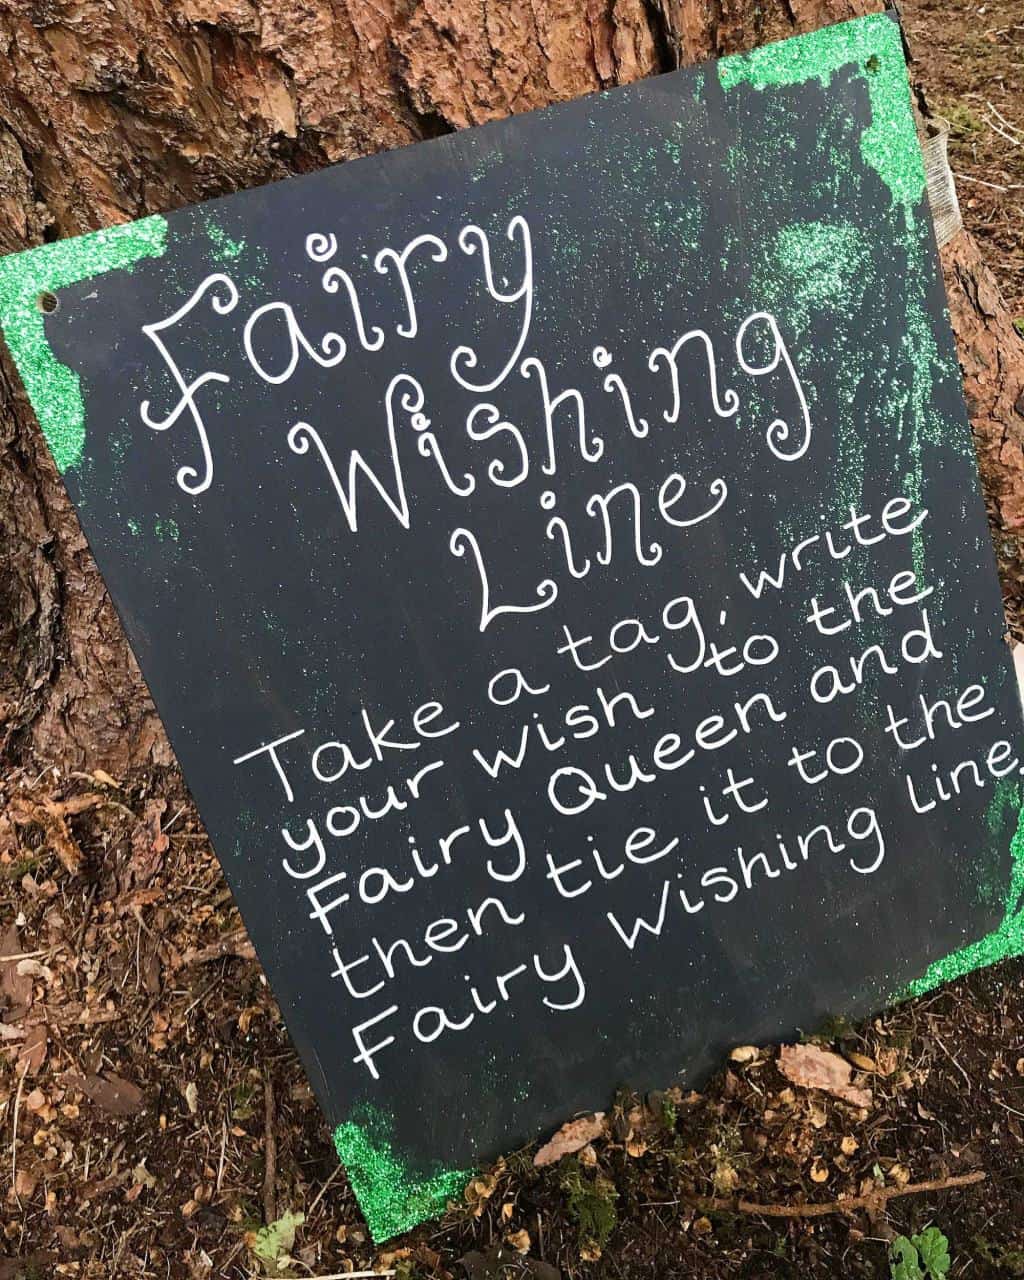 Fairy
Wishing
Line
Take a tag, write
your wish to the
Fairy Queen and
then tie it to the
Fairy Wishing line.